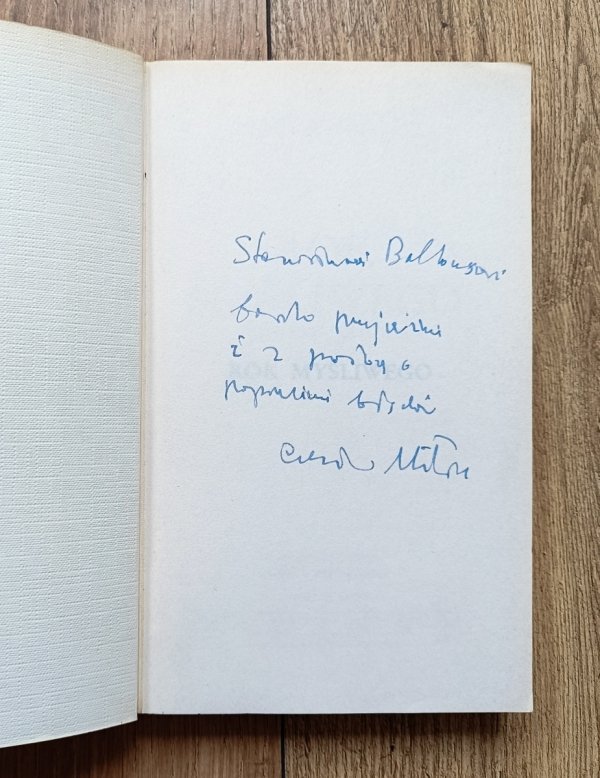 Stanisławowi Balbusowi
bardzo przyjaźnie
i z prośbą o
ROK MYŚLIWEGO
poprawienie błędów
Czesław Miłosz